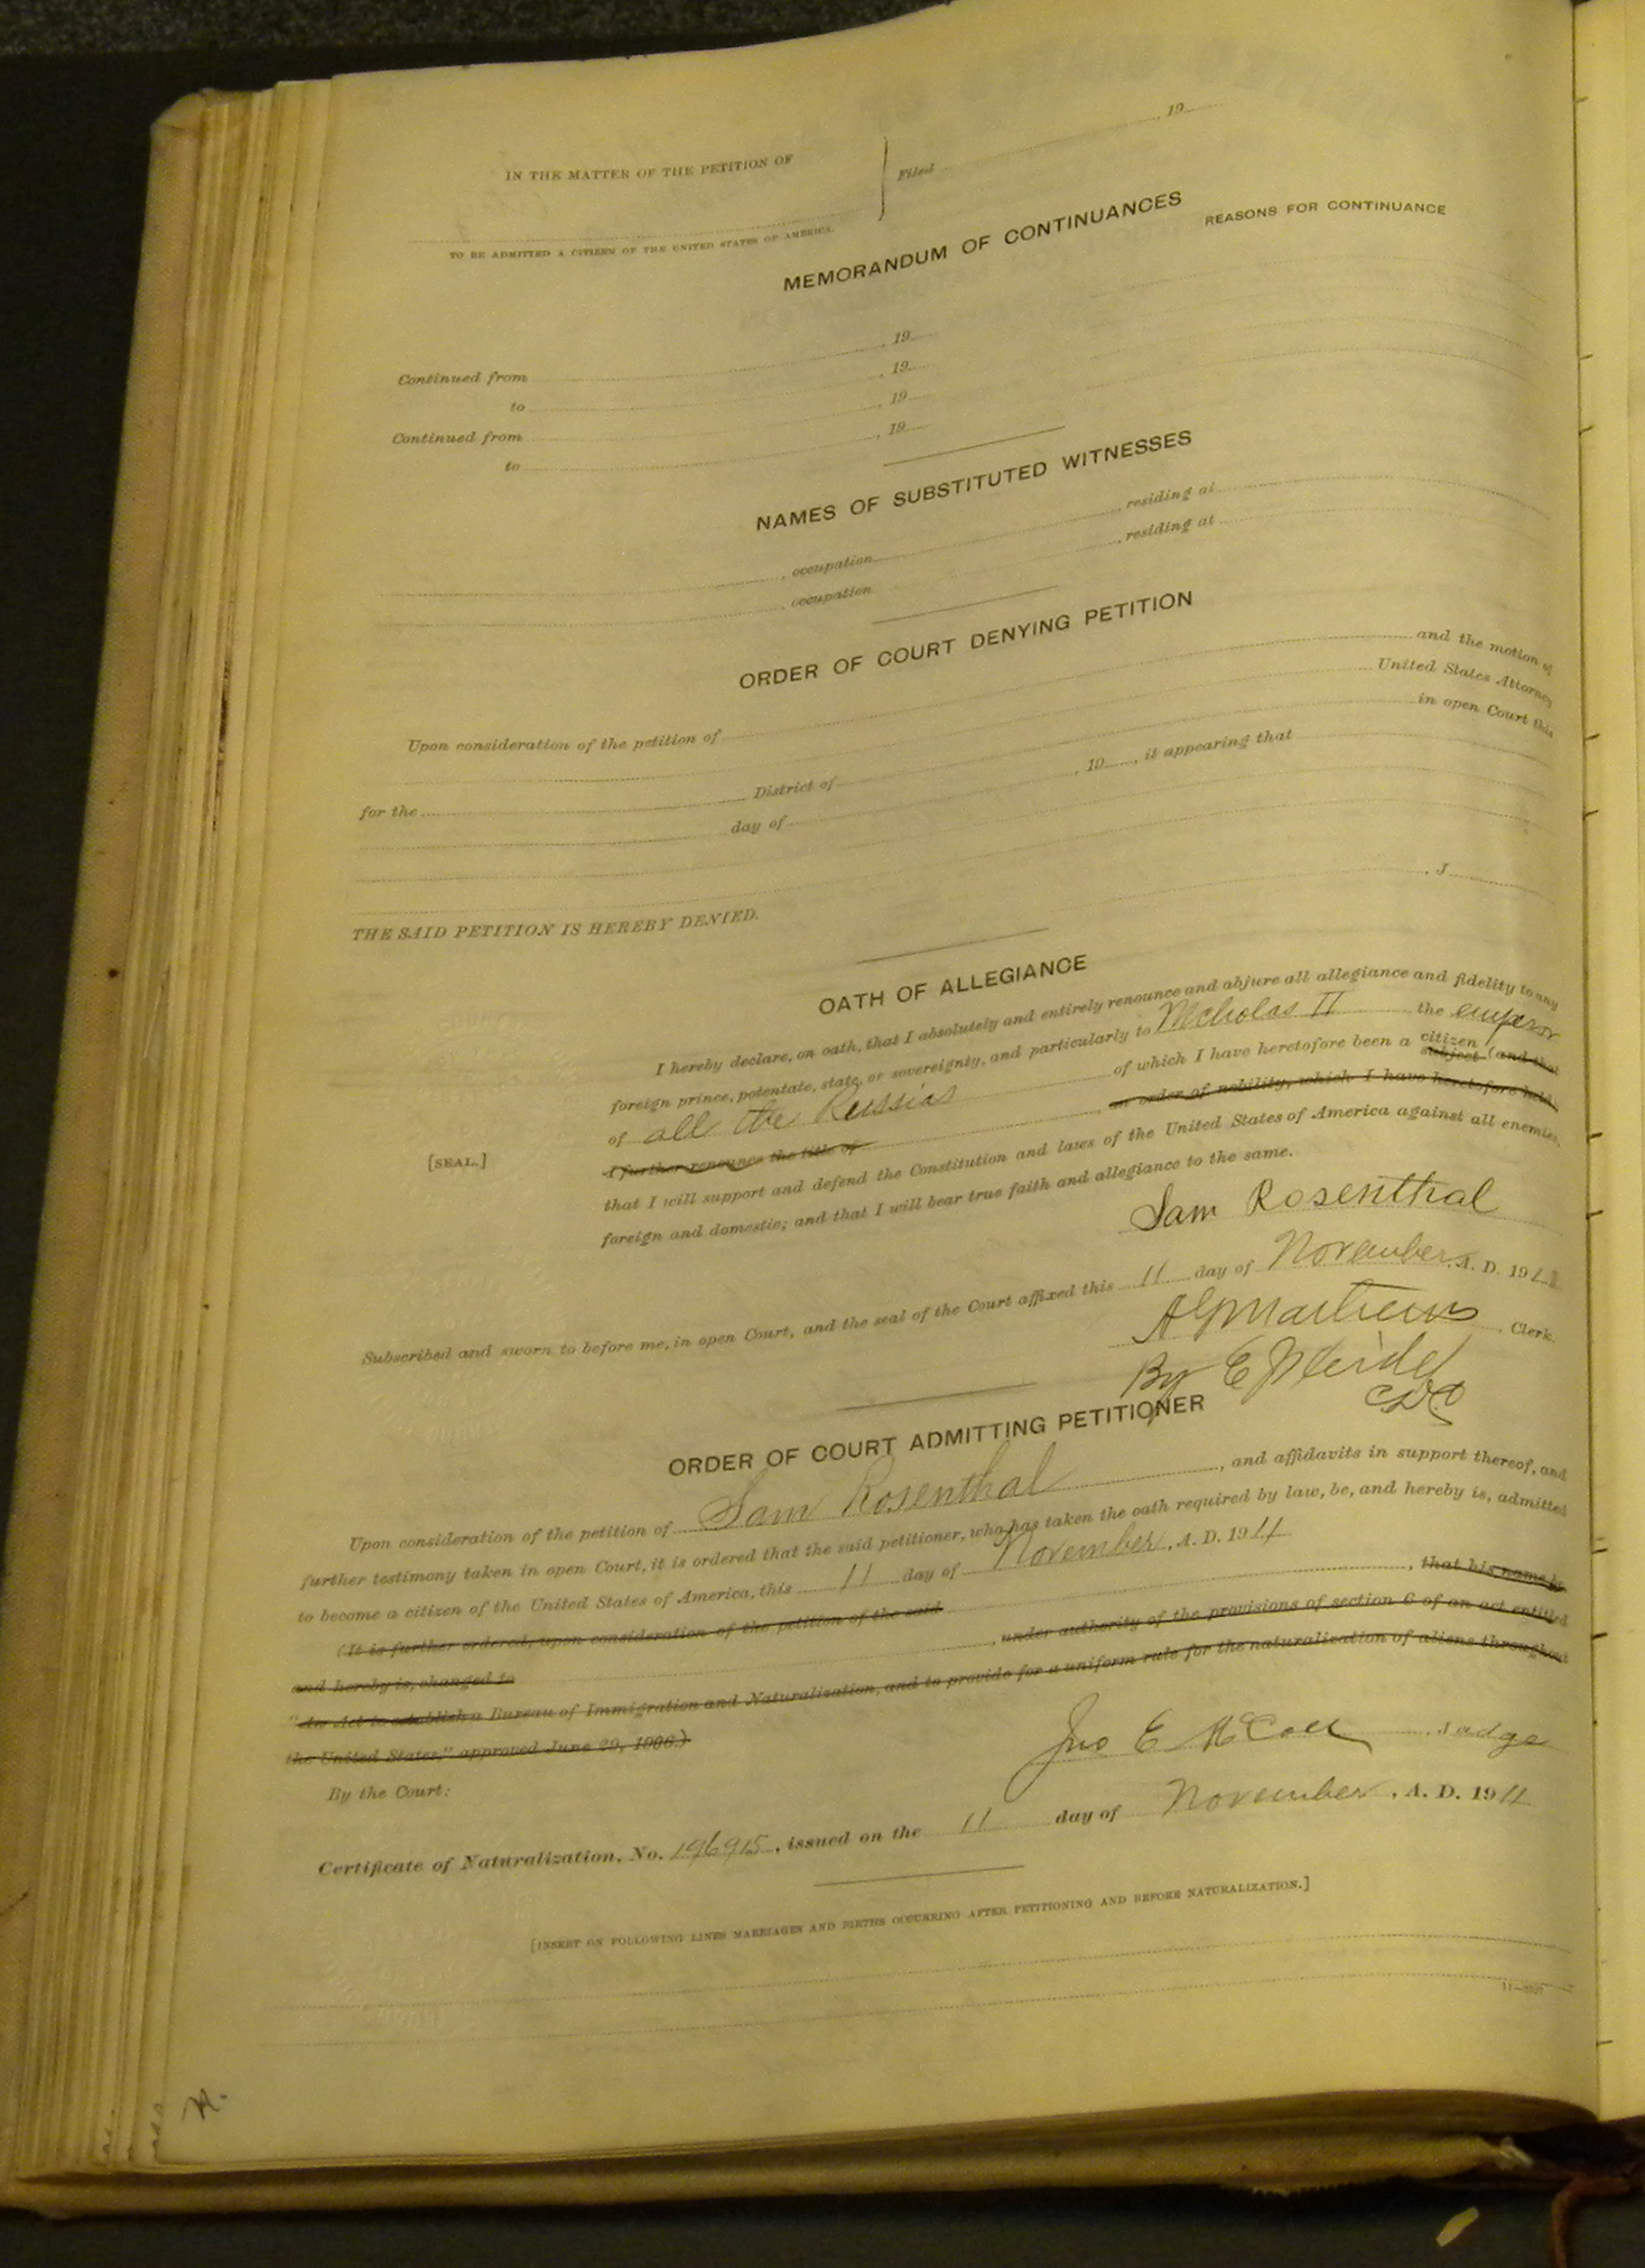 IN THE MATTER OF THE PETITION OF
Filed , 19
TO BE ADMITTED A CITIZEN OF THE UNITED STATES OF AMERICA.
MEMORANDUM OF CONTINUANCES
REASONS FOR CONTINUANCE
Continued from , 19
to , 19
Continued from , 19
to , 19
NAMES OF SUBSTITUTED WITNESSES
, occupation , residing at
, occupation , residing at
ORDER OF COURT DENYING PETITION
Upon consideration of the petition of and the motion of
United States Attorney
for the District of in open Court this
day of , 19 , it appearing that
THE SAID PETITION IS HEREBY DENIED.
, J
OATH OF ALLEGIANCE
I hereby declare, on oath, that I absolutely and entirely renounce and abjure all allegiance and fidelity to any
foreign prince, potentate, state, or sovereignty, and particularly to Nicholas II the emperor
of all the Russias of which I have heretofore been a citizen subject (and that
[SEAL.]
I further renounce the title of an order of nobility, which I have heretofore held,
that I will support and defend the Constitution and laws of the United States of America against all enemies,
foreign and domestic; and that I will bear true faith and allegiance to the same.
Sam Rosenthal
Subscribed and sworn to before me, in open Court, and the seal of the Court affixed this 11 day of November, A. D. 191
, Clerk.
By E
ORDER OF COURT ADMITTING PETITIONER
Upon consideration of the petition of Sam Rosenthal , and affidavits in support thereof, and
further testimony taken in open Court, it is ordered that the said petitioner, who has taken the oath required by law, be, and hereby is, admitted
to become a citizen of the United States of America, this 11 day of November, A. D. 1911
(It is further ordered, upon consideration of the petition of the said , that his name be
and hereby is, changed to , under authority of the provisions of section 6 of an act entitled
"An Act to establish a Bureau of Immigration and Naturalization, and to provide for a uniform rule for the naturalization of aliens throughout
the United States," approved June 29, 1906.)
By the Court:
Jno E McCall , Judge
Certificate of Naturalization, No. 196915, issued on the 11 day of November, A. D. 1911
[INSERT ON FOLLOWING LINES MARRIAGES AND BIRTHS OCCURRING AFTER PETITIONING AND BEFORE NATURALIZATION.]